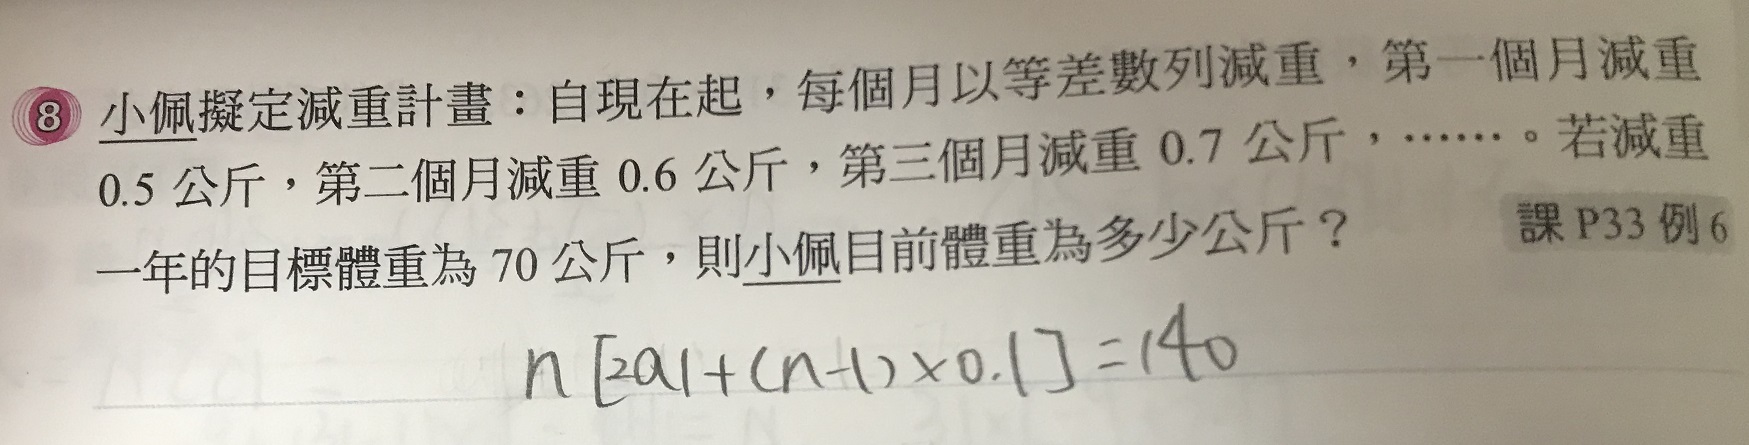 8 小佩擬定減重計畫：自現在起，每個月以等差數列減重，第一個月減重
0.5 公斤，第二個月減重 0.6 公斤，第三個月減重 0.7 公斤，……。若減重
一年的目標體重為 70 公斤，則小佩目前體重為多少公斤？ 課 P33 例 6
n[2a1+(n-1)×0.1]=140